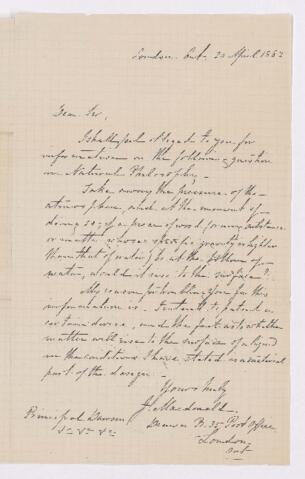 London. Ont. 23 April 1883
Dear Sir,
I shall feel obliged to you for
information on the following question
in Natural Philosophy.
Take away the pressure of the
atmosphere, and at the moment of
doing so, if a piece of wood (or any substance
or matter whose specific gravity is lighter
than that of water) be at the bottom of
water, would it rise to the surface?
My reason for troubling you for this
information is. I intend to patent a
certain device, and the fact as to whether
matter will rise to the surface of a liquid
in the conditions I have stated is a material
part of the design.
Yours truly
J. Macdonald.
Drawer B. 35 Post Office
London,
Ont
Principal Dawson